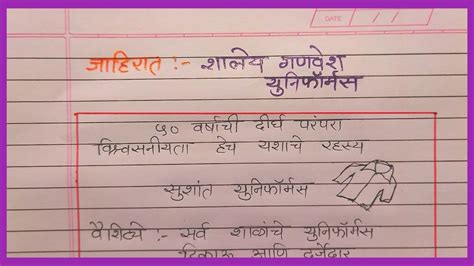 DATE
जाहिरात :- शालेय गणवेश
युनिफॉर्मस
५० वर्षाची दीर्घ परंपरा
विश्वसनीयता हेच यशाचे रहस्य
सुशांत युनिफॉर्मस
वैशिष्ट्ये :- सर्व शाळांचे युनिफॉर्मस
टिकाऊ आणि दर्जेदार